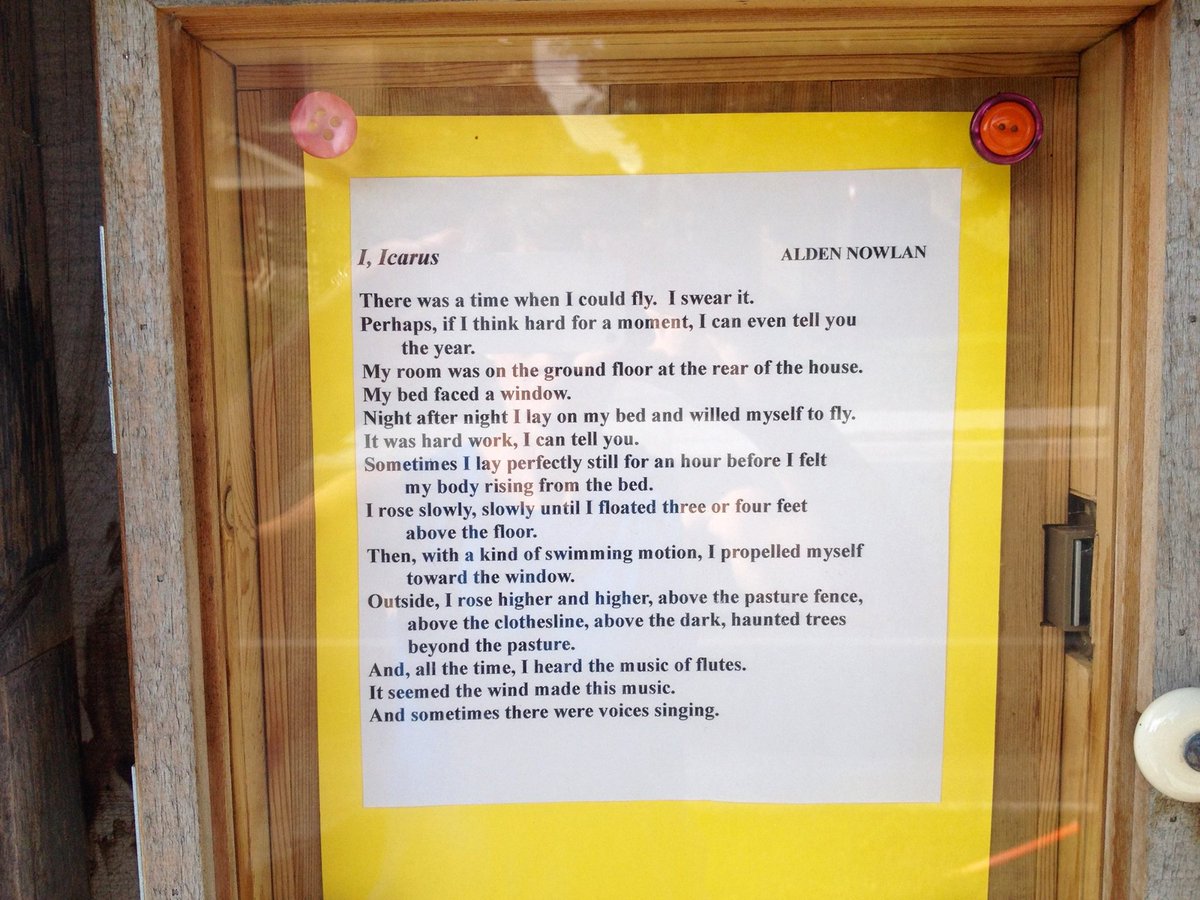 I, Icarus ALDEN NOWLAN
There was a time when I could fly. I swear it.
Perhaps, if I think hard for a moment, I can even tell you
the year.
My room was on the ground floor at the rear of the house.
My bed faced a window.
Night after night I lay on my bed and willed myself to fly.
It was hard work, I can tell you.
Sometimes I lay perfectly still for an hour before I felt
my body rising from the bed.
I rose slowly, slowly until I floated three or four feet
above the floor.
Then, with a kind of swimming motion, I propelled myself
toward the window.
Outside, I rose higher and higher, above the pasture fence,
above the clothesline, above the dark, haunted trees
beyond the pasture.
And, all the time, I heard the music of flutes.
It seemed the wind made this music.
And sometimes there were voices singing.